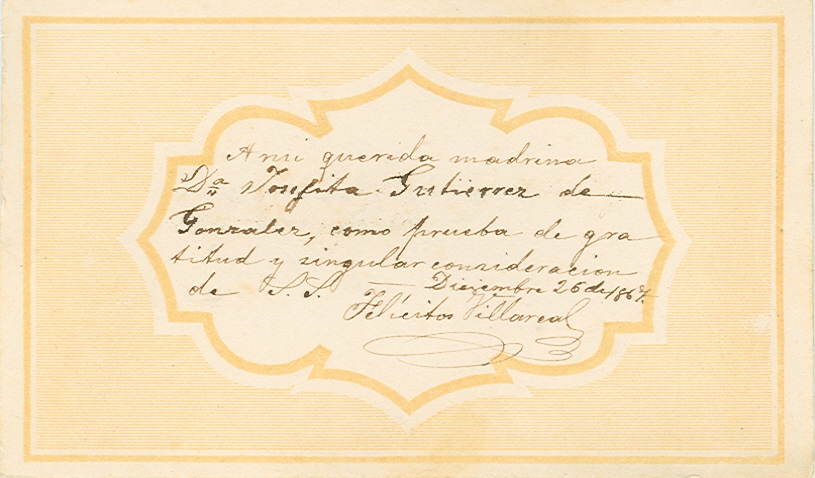 A mi querida madrina
Dª Josefita Gutierrez de
Gonzalez, como prueba de gra
titud y singular consideracion
de S.S. — Diciembre 26 de 1867.
Felicitos Villareal